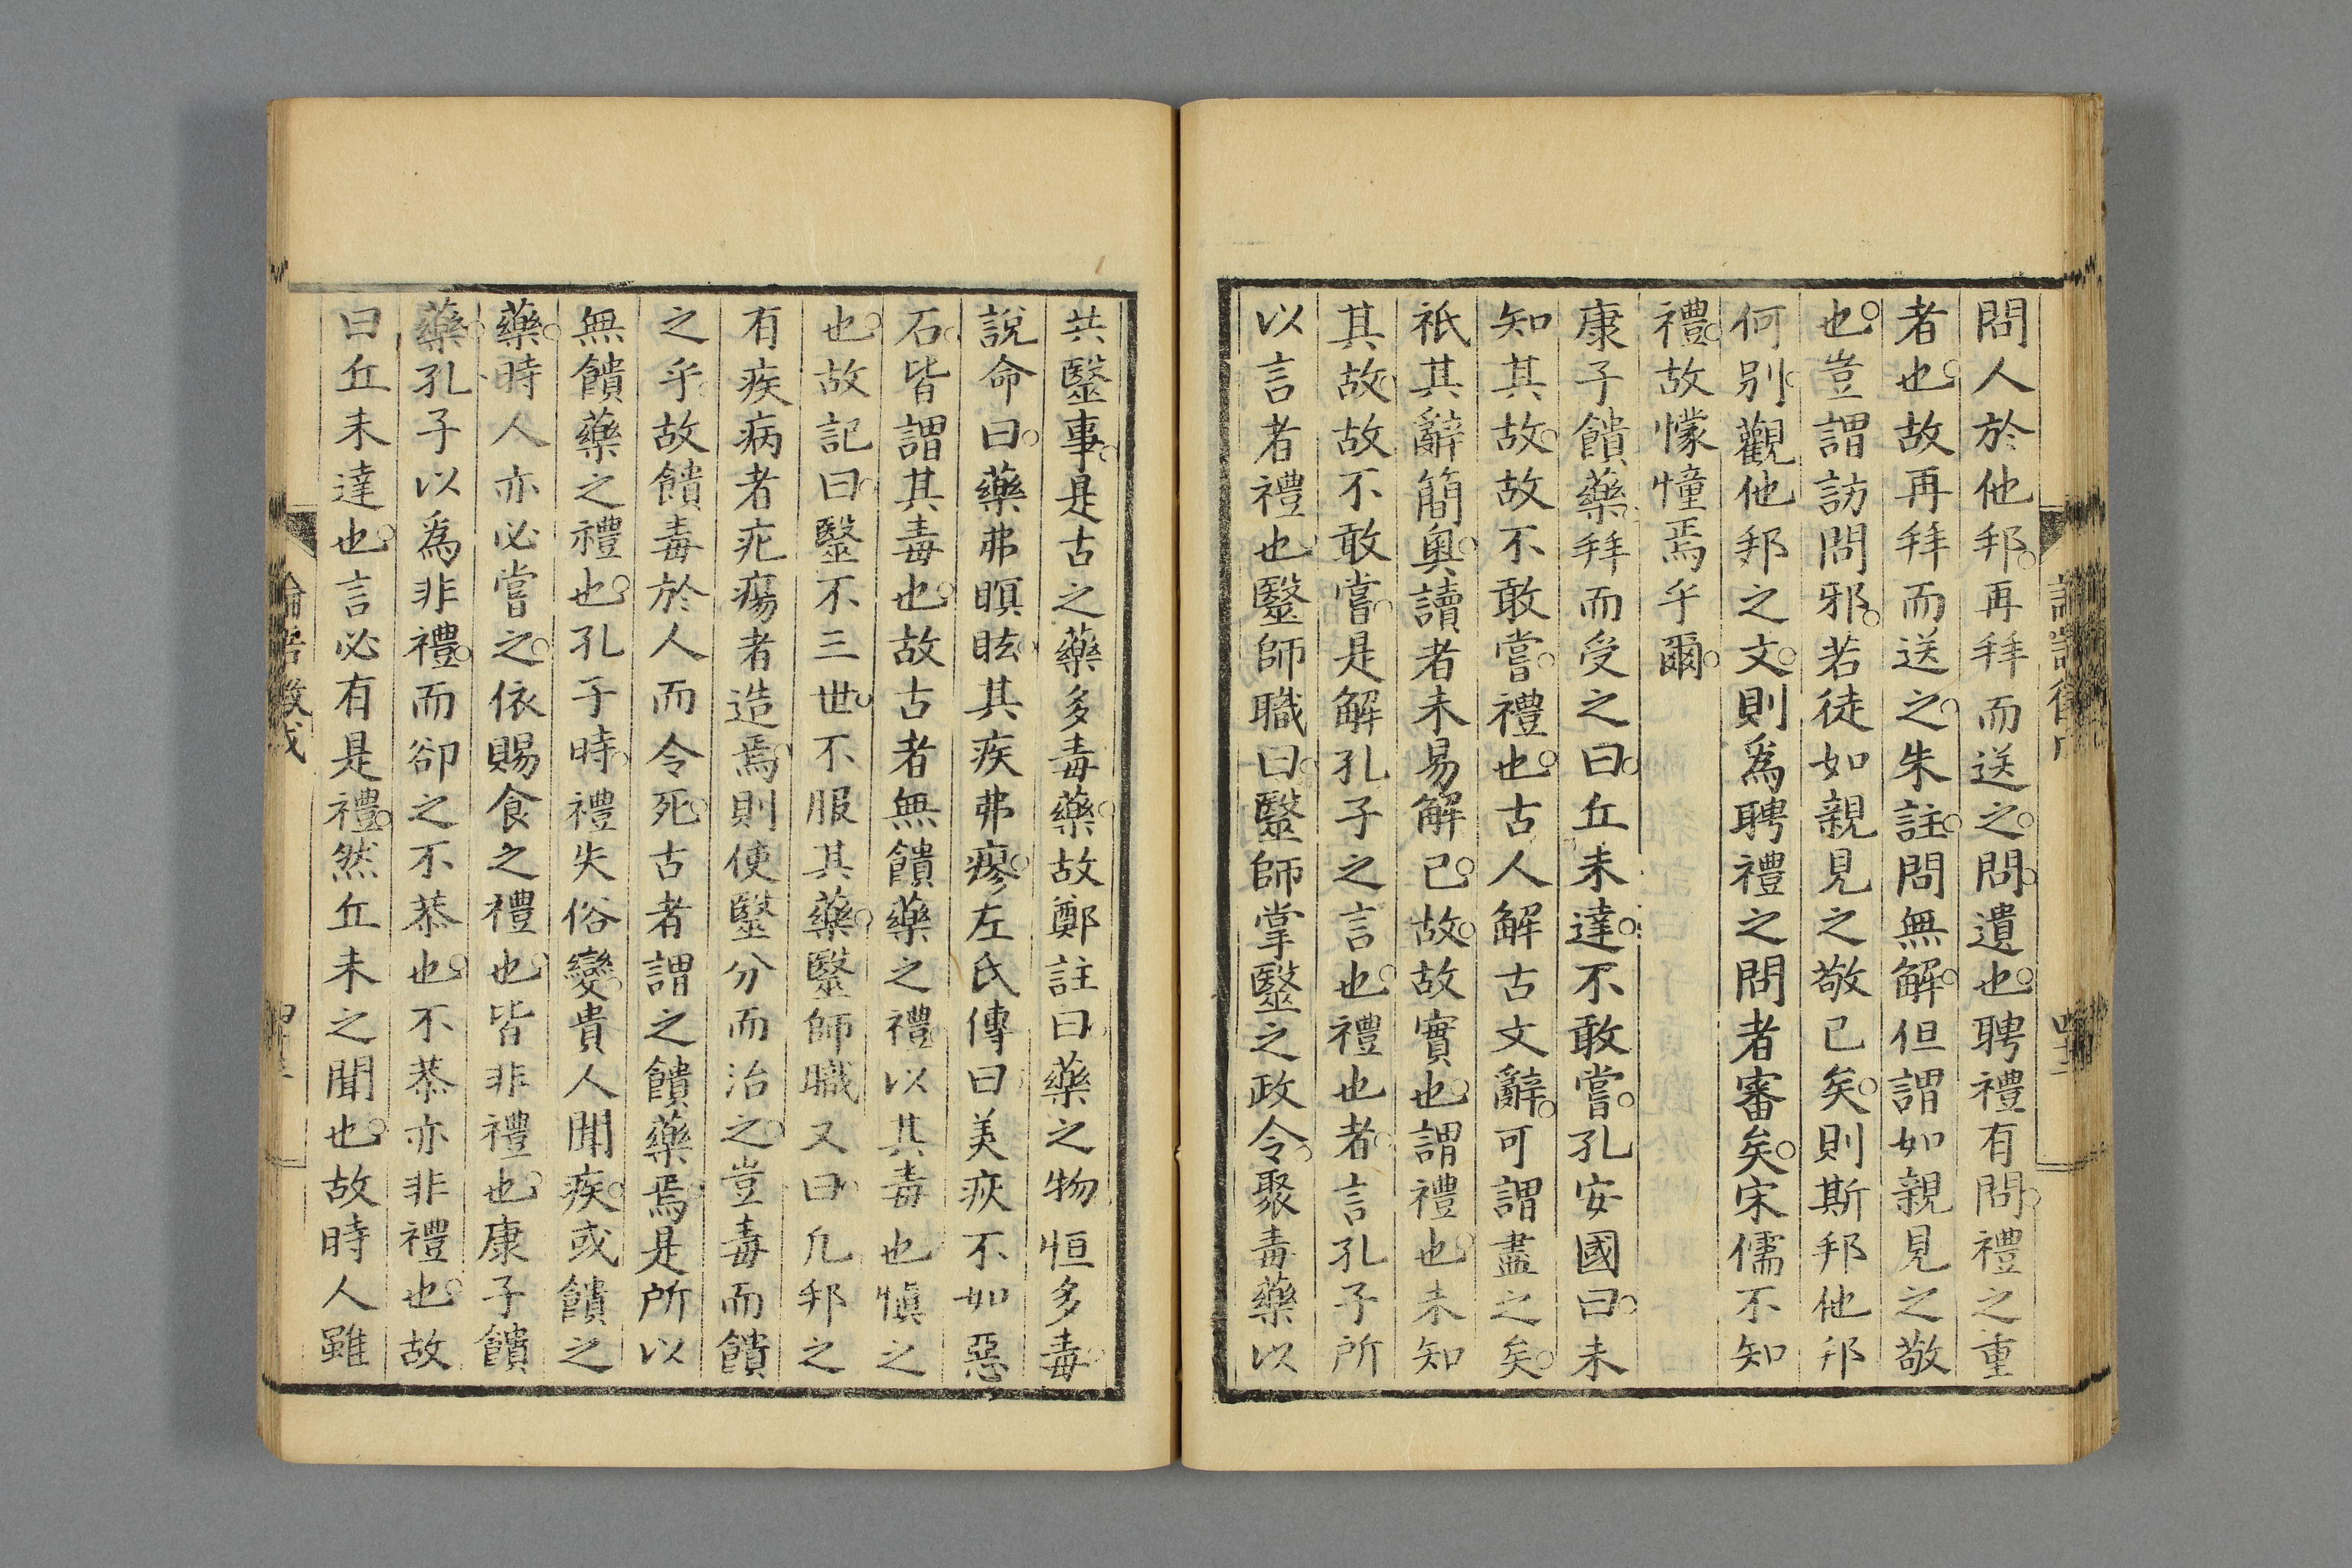 問人於他邦再拜而送之問問遺也聘禮有問禮之重
者也故再拜而送之朱註問無解但謂如親見之敬
也豈謂訪問邪若徒如親見之敬已矣則斯邦他邦
何別觀他邦之文則爲聘禮之問者審矣宋儒不知
禮故懞憧焉乎爾
康子饋藥拜而受之曰丘未達不敢嘗孔安國曰未
知其故故不敢嘗禮也古人解古文辭可謂盡之矣
祇其辭簡奧讀者未易解已故故實也謂禮也未知
其故故不敢嘗是解孔子之言也禮也者言孔子所
以言者禮也醫師職曰醫師掌醫之政令聚毒藥以
共醫事是古之藥多毒藥故鄭註曰藥之物恒多毒
說命曰藥弗瞑眩其疾弗瘳左氏傳曰美疢不如惡
石皆謂其毒也故古者無饋藥之禮以其毒也愼之
也故記曰醫不三世不服其藥醫師職又曰凡邦之
有疾病者疕瘍者造焉則使醫分而治之豈毒而饋
之乎故饋毒於人而令死古者謂之饋藥焉是所以
無饋藥之禮也孔子時禮失俗變貴人聞疾或饋之
藥時人亦必嘗之依賜食之禮也皆非禮也康子饋
藥孔子以爲非禮而卻之不恭也不恭亦非禮也故
曰丘未達也言必有是禮然丘未之聞也故時人雖